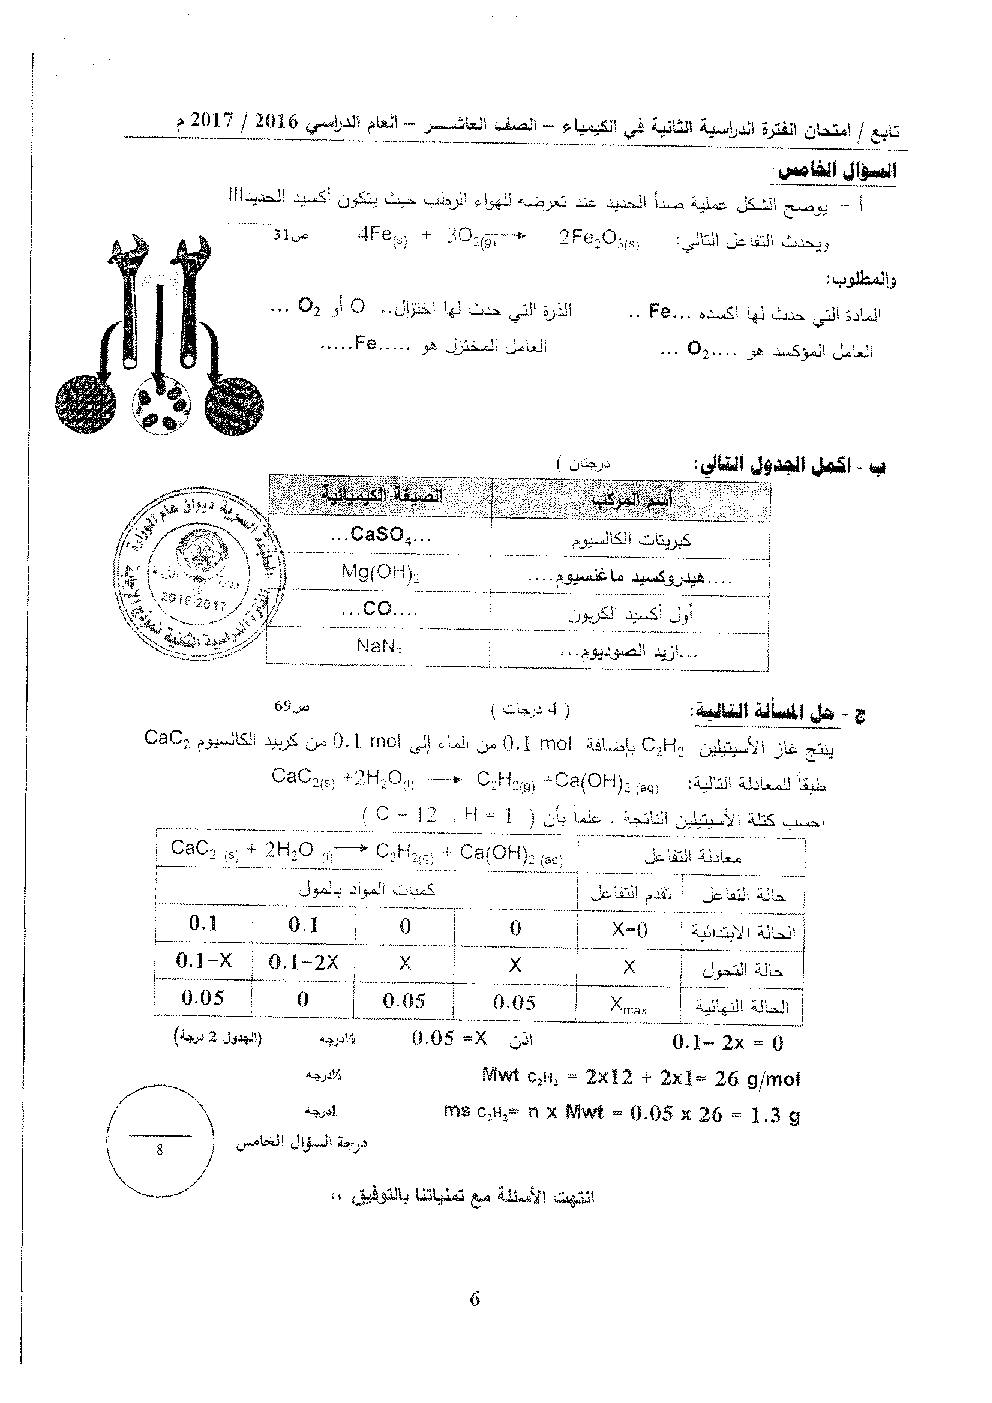 تابع / امتحان الفترة الدراسية الثانية في الكيمياء – الصف العاشر – العام الدراسي 2016 / 2017 م
السؤال الخامس
أ – يوضح الشكل عملية صدأ الحديد عند تعرضه للهواء الرطب حيث يتكون أكسيد الحديدIII
ويحدث التفاعل التالي: 4Fe(s) + 3O2(g) → 2Fe2O3(s) ص31
والمطلوب:
المادة التي حدث لها اكسده ...Fe .. الذرة التي حدث لها اختزال.. O أو O2 ...
العامل المؤكسد هو ....O2 ... العامل المختزل هو .....Fe.....
ب - اكمل الجدول التالي: درجتان )
اسم المركب الصيغة الكيميائية
كبريتات الكالسيوم ...CaSO4...
....هيدروكسيد ماغنسيوم.... Mg(OH)2
أول أكسيد الكربون ...CO....
...ازيد الصوديوم... NaN3
المطبعة السرية ديوان عام الوزارة
2016-2017
ج - حل المسألة التالية: ( 4 درجات ) ص69
ينتج غاز الأسيتيلين C2H2 بإضافة 0.1 mol من الماء إلى 0.1 mol من كربيد الكالسيوم CaC2
طبقاً للمعادلة التالية: CaC2(s) +2H2O(l) → C2H2(g) +Ca(OH)2 (aq)
احسب كتلة الأسيتيلين الناتجة . علما بأن ( C = 12 , H = 1 )
معادلة التفاعل CaC2 (s) + 2H2O (l) → C2H2(g) + Ca(OH)2 (aq)
حالة التفاعل تقدم التفاعل كميات المواد بالمول
الحالة الابتدائية X=0 0 0 0.1 0.1
حالة التحول X X X 0.1-2X 0.1-X
الحالة النهائية Xmax 0.05 0.05 0 0.05
0.1- 2x = 0 اذن 0.05 =X ½درجه (الجدول 2 درجة)
Mwt C2H2 = 2x12 + 2x1= 26 g/mol ½درجه
ms C2H2= n x Mwt = 0.05 x 26 = 1.3 g 1درجه
درجة السؤال الخامس
8
انتهت الأسئلة مع تمنياتنا بالتوفيق ،،
6